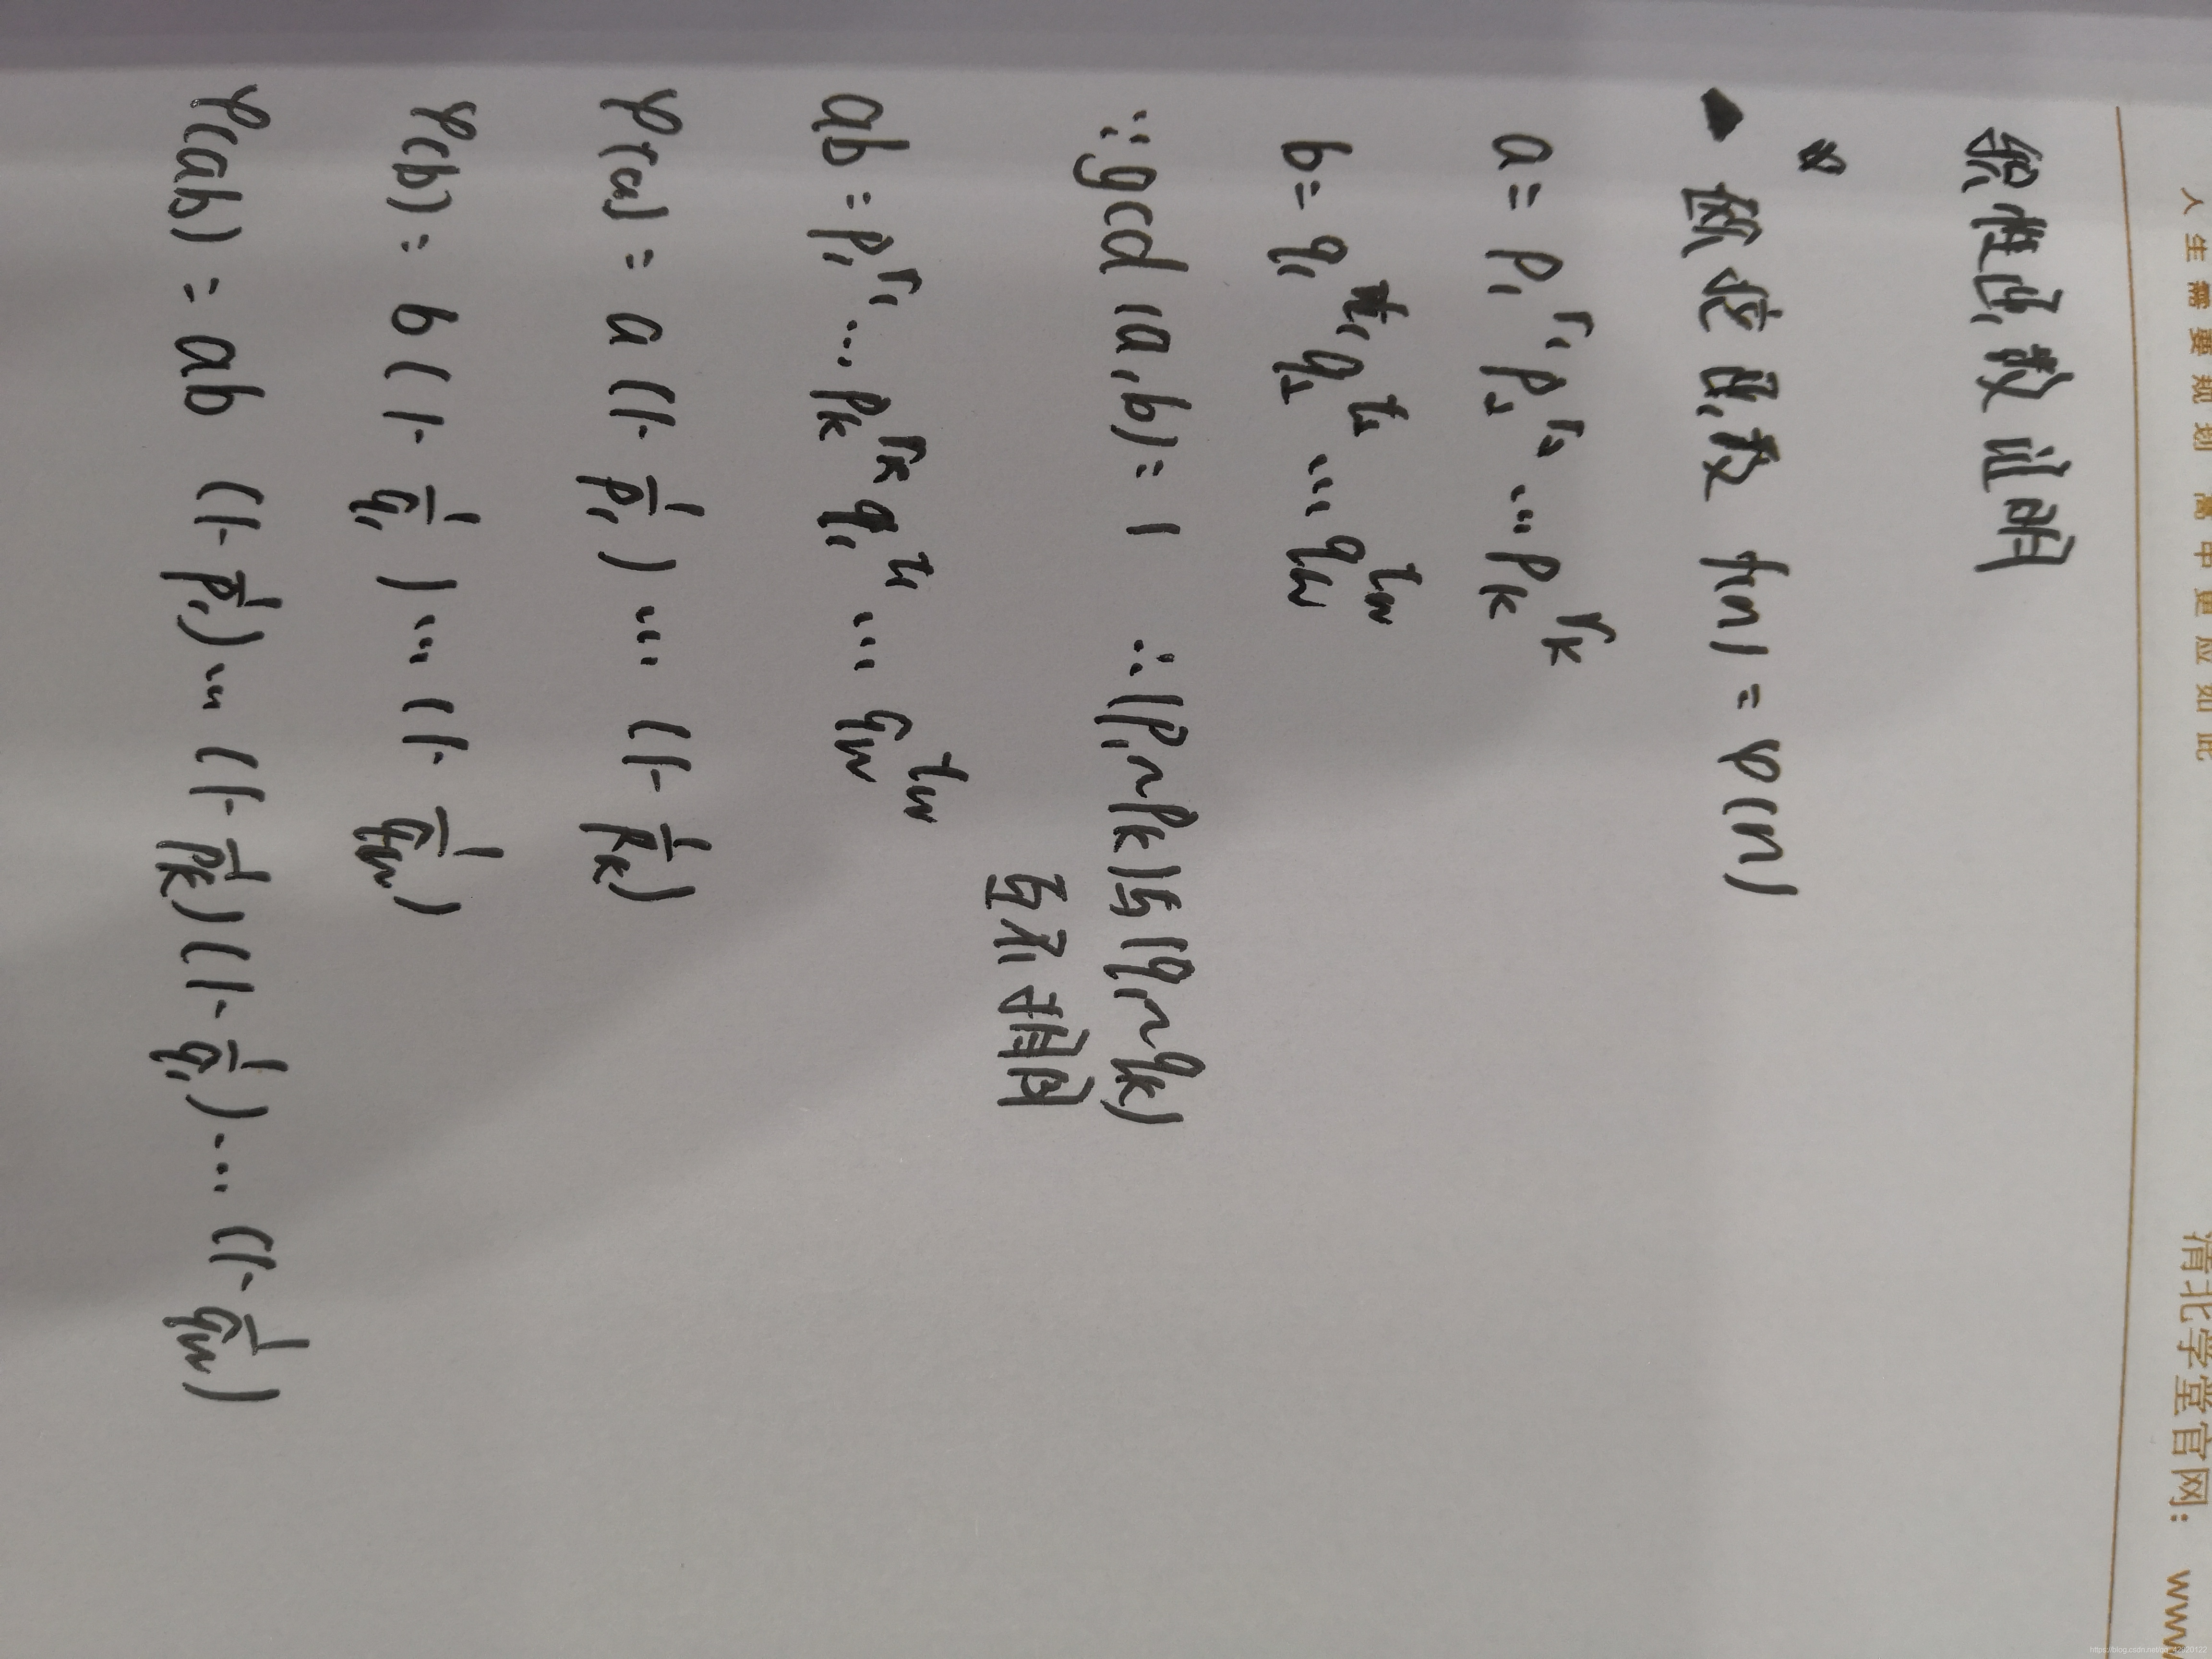 人生需要规划 高中更应如此
清北学堂官网: www
积性函数证明
欧拉函数 f(n) = φ(n)
a = p₁^r₁ p₂^r₂ ... pₖ^rₖ
b = q₁^t₁ q₂^t₂ ... q_w^t_w
∵ gcd(a,b) = 1 ∴ (p₁~pₖ)与(q₁~qₖ)
互不相同
ab = p₁^r₁ ... pₖ^rₖ q₁^t₁ ... q_w^t_w
φ(a) = a (1-1/p₁) ... (1-1/pₖ)
φ(b) = b (1-1/q₁) ... (1-1/q_w)
φ(ab) = ab (1-1/p₁) ... (1-1/pₖ)(1-1/q₁) ... (1-1/q_w)